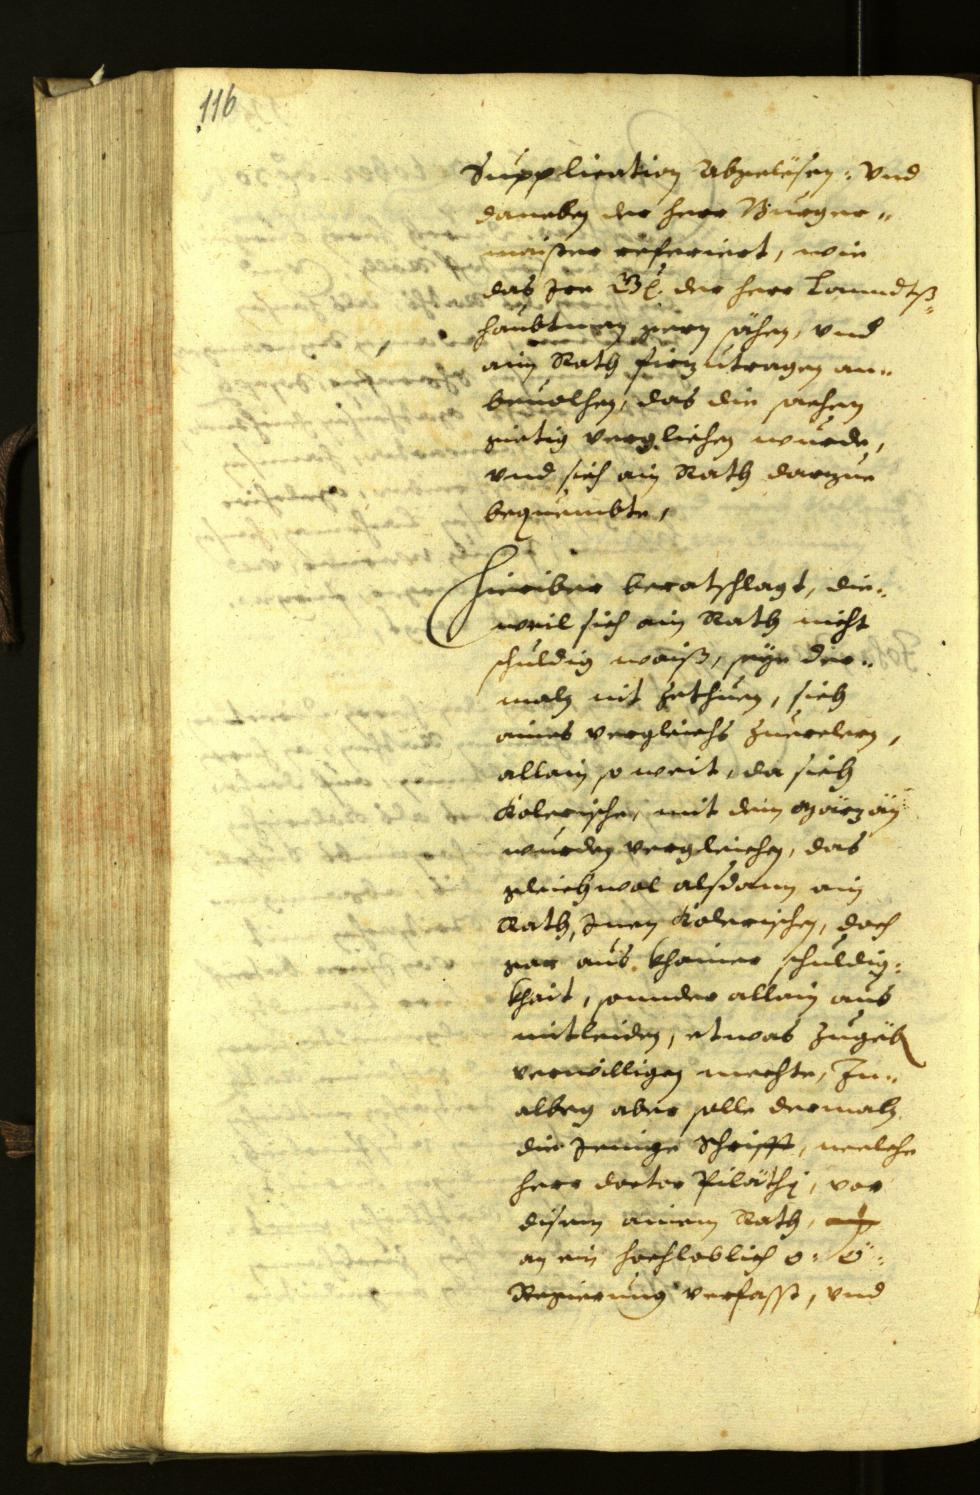 116
Supplication Abgelësen: Vnd
daneben der herr Burger„
maister referiert, wie
das Ire Gl. der herr Lanndtß„
haubtman gern sähen, vnd
ain Rath firzutragen an„
beuolhen, das die sachen
gietig verglichen wurde,
vnd sich ain Rath darzue
bequembte,
Hieriber beratschlagt, die„
weil sich ain Rath nicht
schuldig waiß, seye der„
maln nit zethuen, sich
aines vergleichs zuerclern,
allain so weit, da sich
Kolerische, mit dem
wurden vergleichen, das
gleichwol alsdann ain
Rath, Inen Kolerischen, doch
gar aus khainer schuldig:
khait, sonnder allain aus
mitleiden, etwas zugeben
verwilligen mechte, In„
alberg aber solle dermaln
die Jenige Schrifft, welche
herr doctor Pilathj, von
disem ainem Rath,
an ein hochloblich o: ö:
Regierung verfasst, vnd